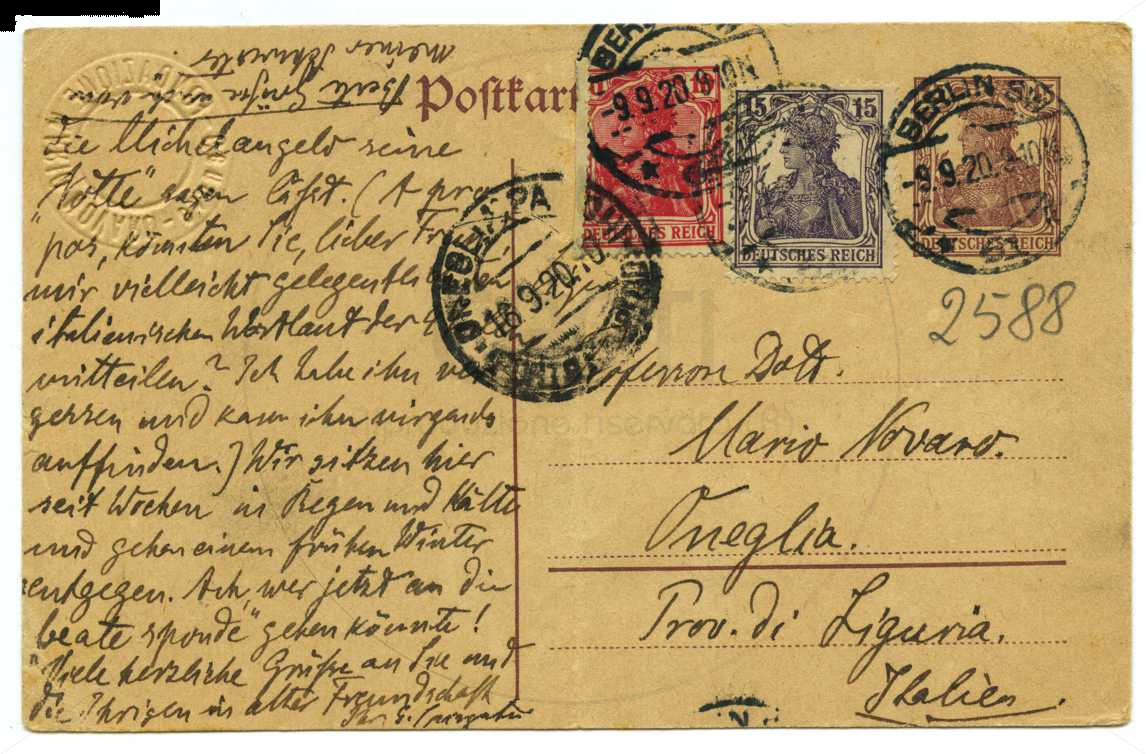 meiner Schwester.
Beste Grüße auch von
Postkart
die Michelangelo seine
"Notte" sagen läßt. (A pro
pos, könnten Sie, lieber Fr
mir vielleicht gelegentlich
italienischen Wortlaut der
mitteilen? Ich habe ihn ver
gessen und kann ihn nirgends
auffinden.) Wir sitzen hier
seit Wochen in Regen und Kälte
und gehen einem frühen Winter
entgegen. Ach, wer jetzt an die
"beate sponde" gehen könnte!
Viele herzliche Grüße an Sie und
die Ihrigen in alter Freundschaft
Ihr
BERLIN SW
-9.9.20.9-10N
15 15
DEUTSCHES REICH
DEUTSCHES REICH
BERLIN SW
-9.9.20.9-10N
DEUTSCHES REICH
18.9.20.10
2588
Professore Dott.
Mario Novaro.
Oneglia.
Prov. di Liguria.
Italien.